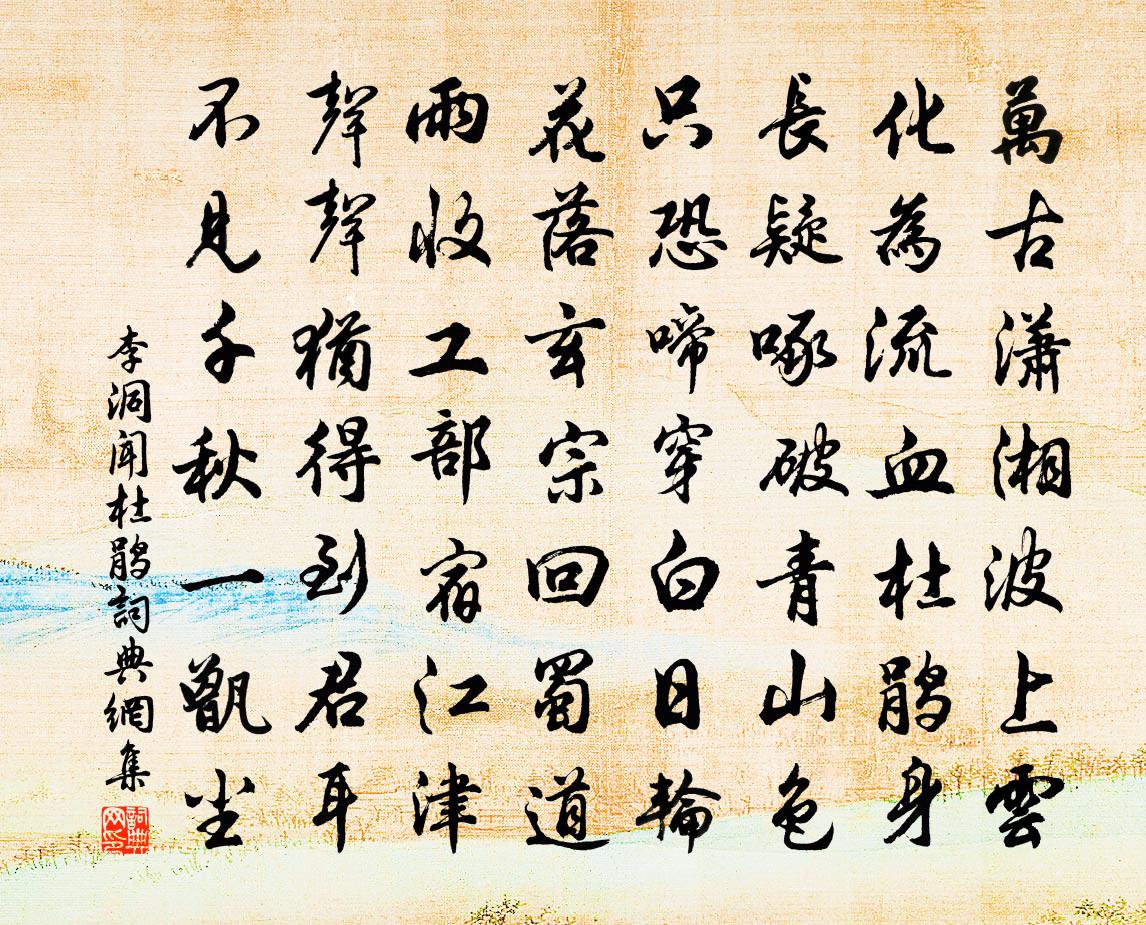 萬古潇湘波上雲
化為流血杜鹃身
長疑啄破青山色
只恐啼穿白日輪
花落玄宗回蜀道
雨收工部宿江津
聲聲猶得到君耳
不見千秋一甑尘
李洞闻杜鹃詞典網集
詞典网印